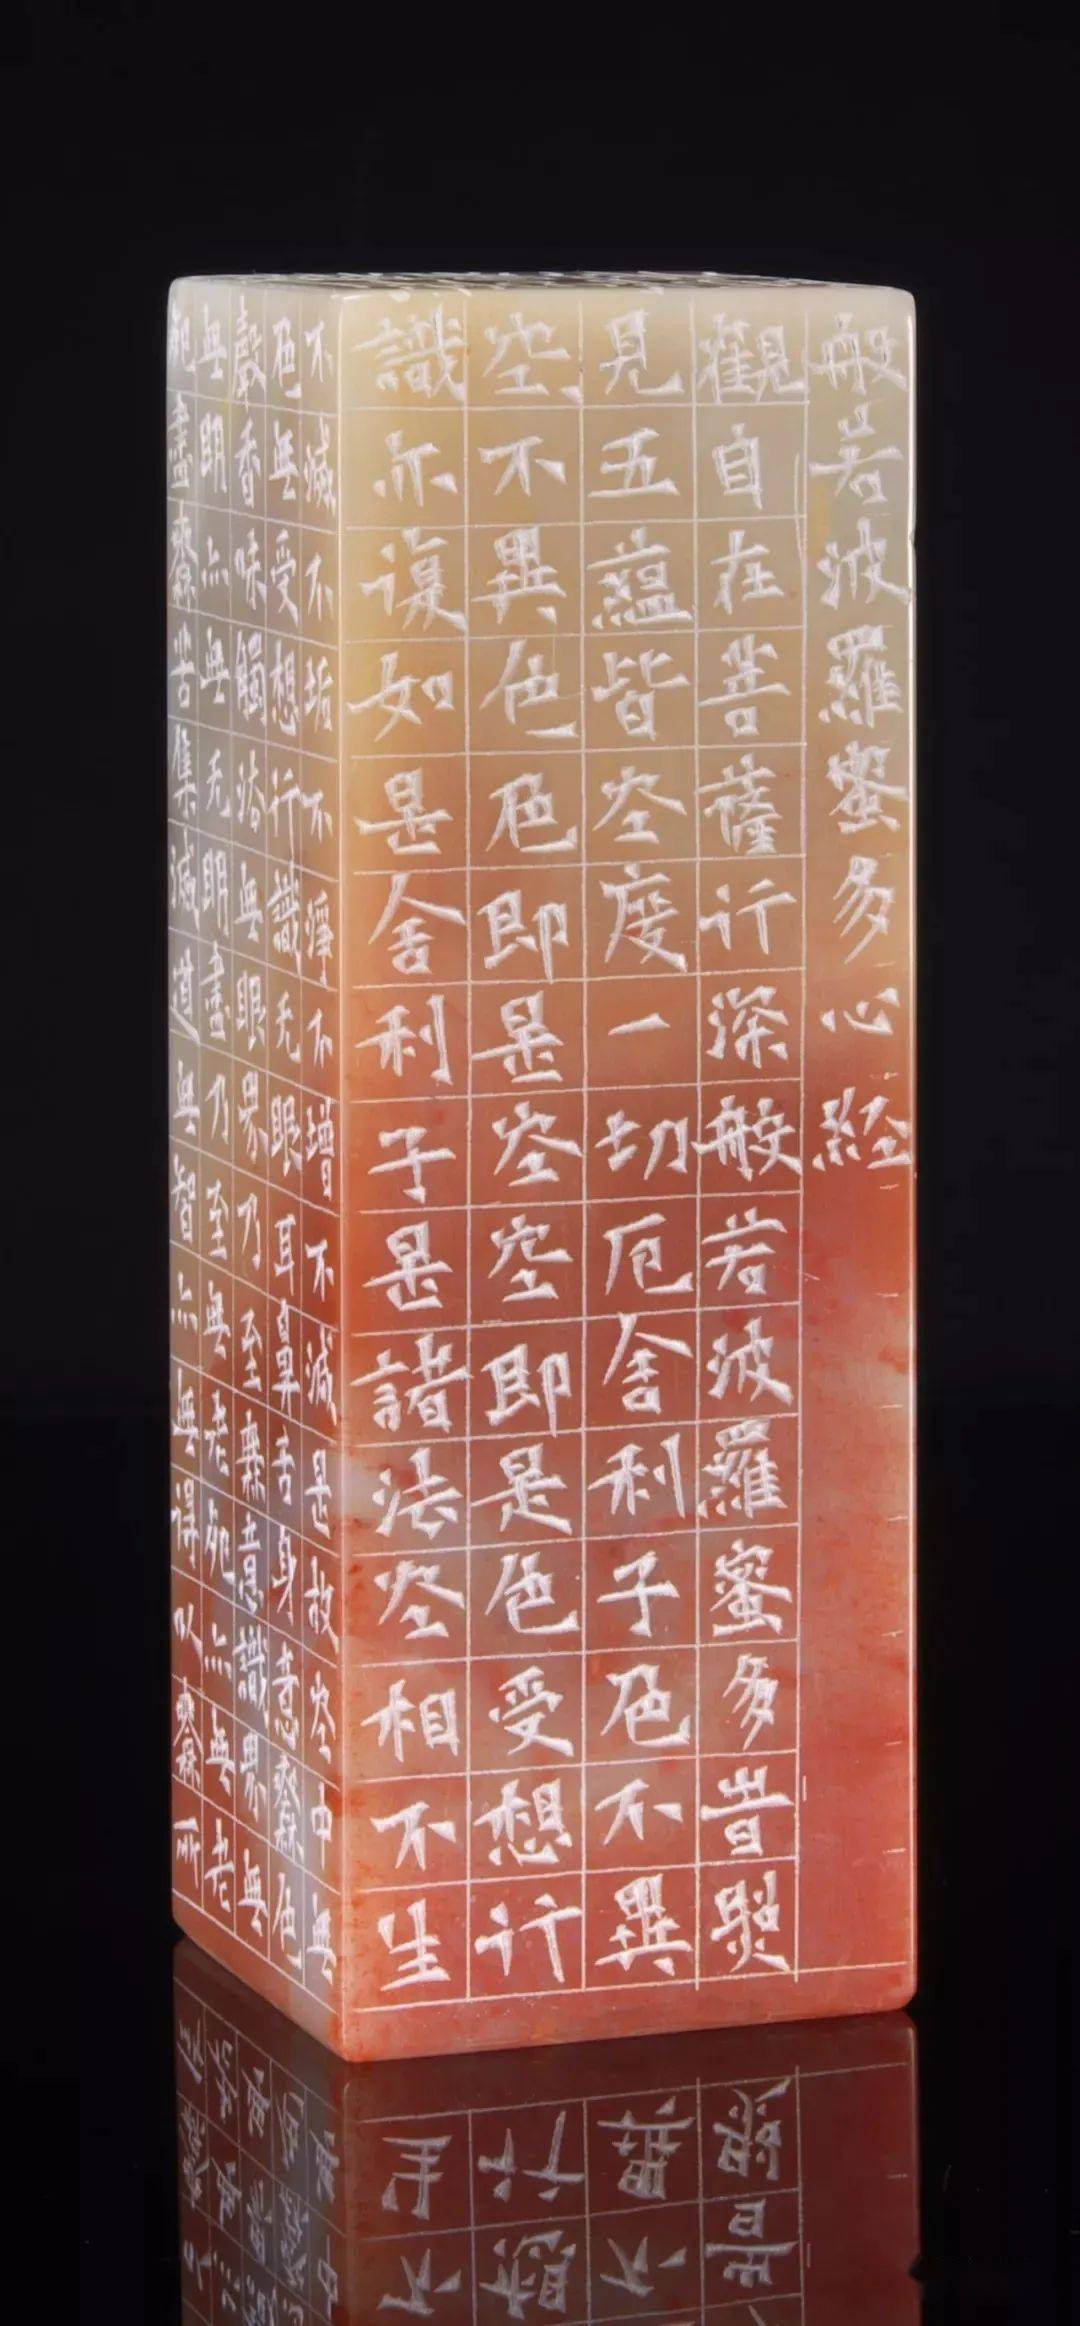 般若波羅蜜多心経
觀自在菩薩行深般若波羅蜜多旹照
見五蘊皆空度一切厄舍利子色不異
空、不異色色即是空空即是色受想行
識亦復如是舍利子是諸法空相不生
不滅不垢不淨不增不減是故空中無
色無受想行識无眼耳鼻舌身意無色
聲香味觸法無眼界乃至無意識界無
無明亦無无明盡乃至無老死亦無老
死盡無苦集滅道無智亦無得以無所